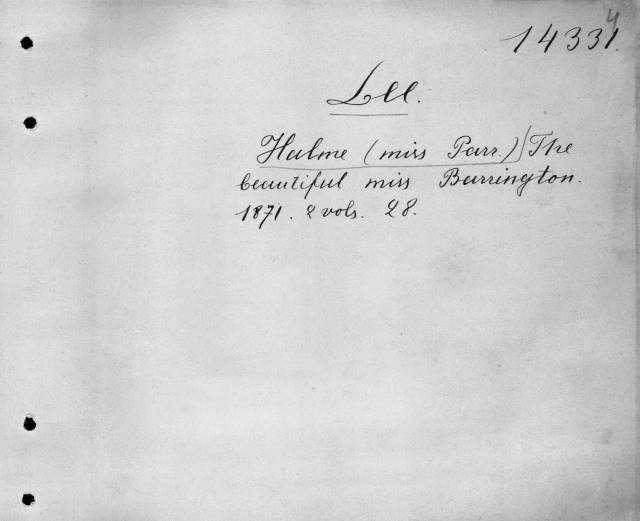 4
14331.
Lee.
Halme (miss Parr.) / The
beautiful miss Barrington.
1871. 2 vols. 28.